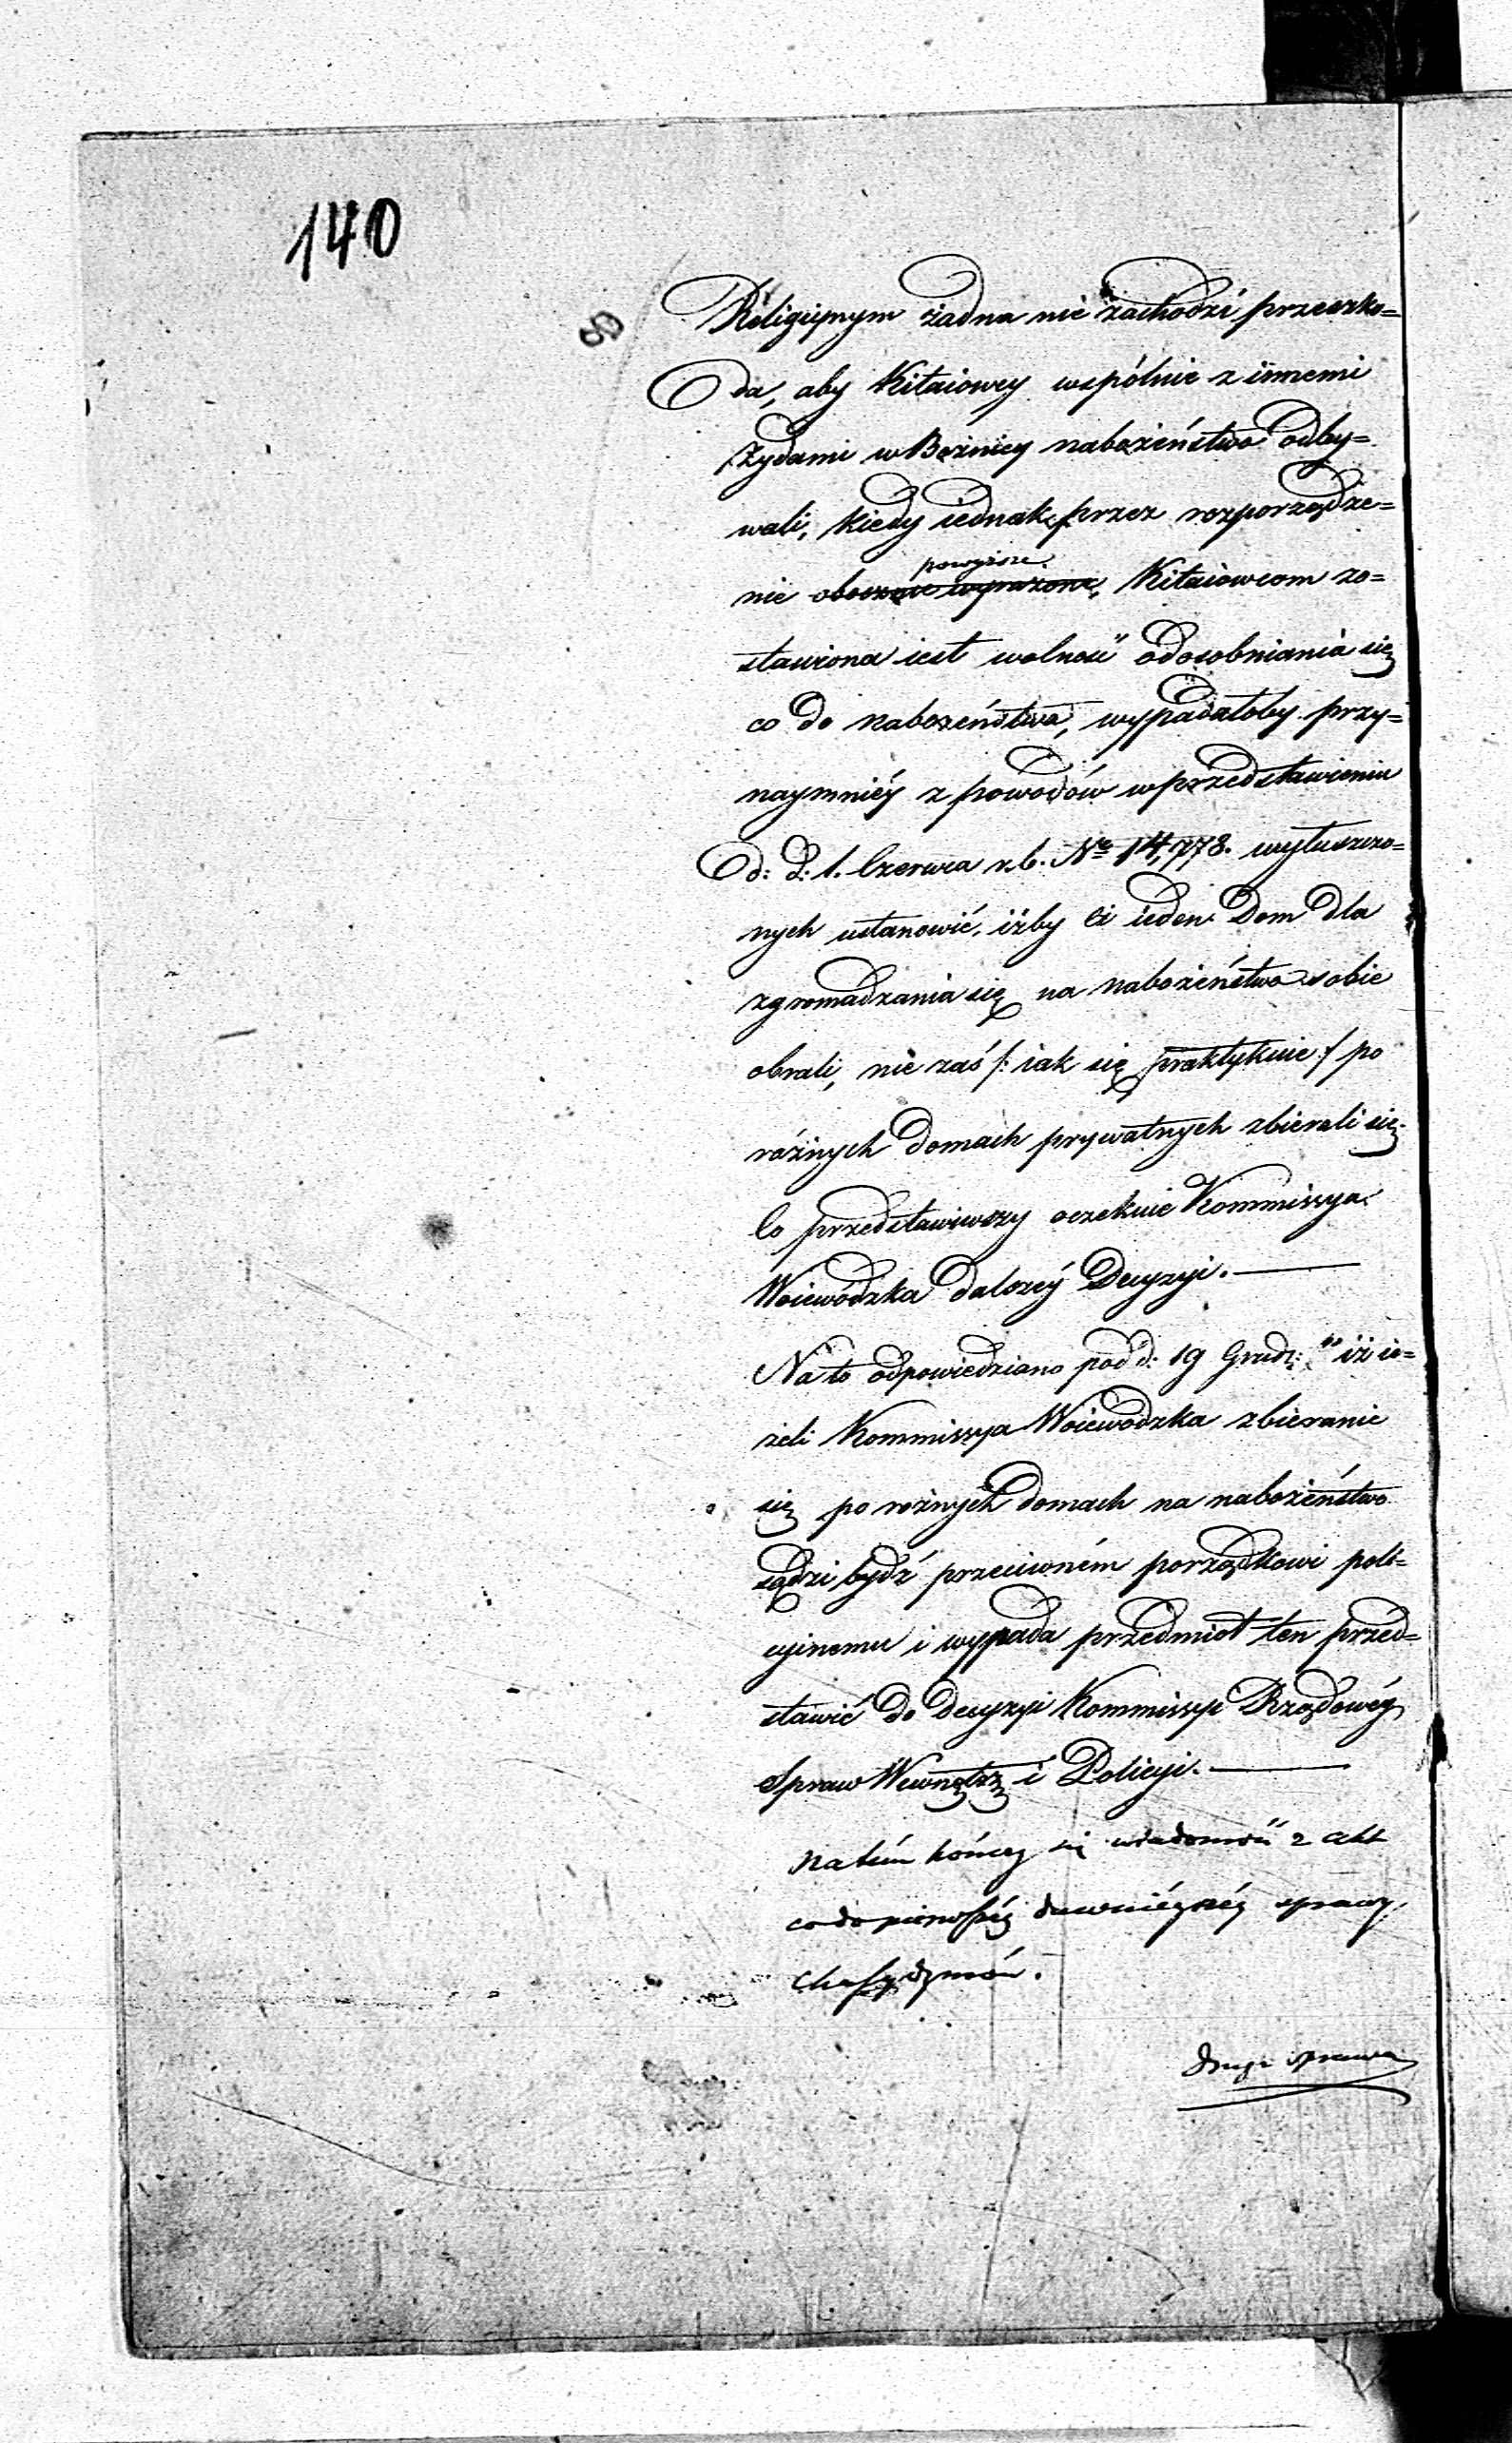 140
Religiynym żadna nie zachodzi przeszko=
da, aby Kitaiowcy wspólnie z innemi
Żydami w Bożnicy nabożeństwo odby=
wali, kiedy iednak przez rozporządze=
powyższe
nie obocznie wyrażone, Kitaiowcom zo=
stawiona iest wolność odosobniania się
co do nabożeństwa, wypadałoby przy=
naymniéy z powodów w przedstawieniu
d: d: 1. Czerwca r.b. No 14,778. wyłuszczo=
nych ustanowić, iżby ci ieden Dom dla
zgromadzania się na nabożeństwo sobie
obrali, nie zaś /: iak się praktykuie :/ po
różnych domach prywatnych zbierali się.
Co przedstawiwszy oczekuie Kommissya
Woiewódzka dalszéy Decyzyi. —
Na to odpowiedziano pod d: 19 Grudz: "iż ie=
żeli Kommissya Woiewódzka zbieranie
się po rożnych domach na nabożeństwo
sądzi bydź przeciwném porządkowi poli=
cyinemu i wypada przedmiot ten przed=
stawić do decyzyi Kommissyi Rządowéy
Spraw Wewnętrz i Policyi. —
Na tém kończy się wiadomość z akt
co do pierwszéy dawniéyszéy sprawy
Chassydymów.
Druga sprawa